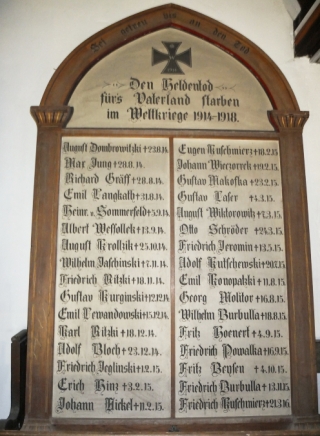 Sei getreu bis an den Tod
Den Heldentod
fürs Vaterland starben
im Weltkriege 1914-1918.
August Dombrowitzki † 23.8.14.
Max Jung † 28.8.14.
Richard Gräff † 28.8.14.
Emil Langkalh † 31.8.14.
Heinr. v. Sommerfeld † 5.9.14.
Albert Wessollek † 13.9.14.
August Krollzik † 25.10.14.
Wilhelm Jaschinski † 7.11.14.
Friedrich Kitzki † 18.11.14.
Gustav Kurginski † 12.12.14
Emil Lewandowski † 15.12.14.
Karl Kitzki † 18.12.14.
Adolf Bloch † 23.12.14.
Friedrich Jeglinski † 12.15.
Erich Hinz † 3.2.15.
Johann Nickel † 11.2.15.
Eugen Kuschmierz † 18.2.15.
Johann Wieczorrek † 19.2.15.
Gustav Makoska † 23.2.15.
Gustav Laser † 4.3.15.
August Wiktorowih † 7.3.15.
Otto Schröder † 24.3.15.
Friedrich Jeromin † 13.5.15.
Adolf Kutschewski † 20.7.15.
Emil Konopatzki † 11.8.15.
Georg Molitor † 16.8.15.
Wilhelm Burbulla † 18.8.15.
Fritz Hoenert † 4.9.15.
Friedrich Powalka † 16.9.15.
Fritz Beysen † 4.10.15.
Friedrich Burbulla † 13.11.15
Friedrich Kuschmierz † 21.3.16.